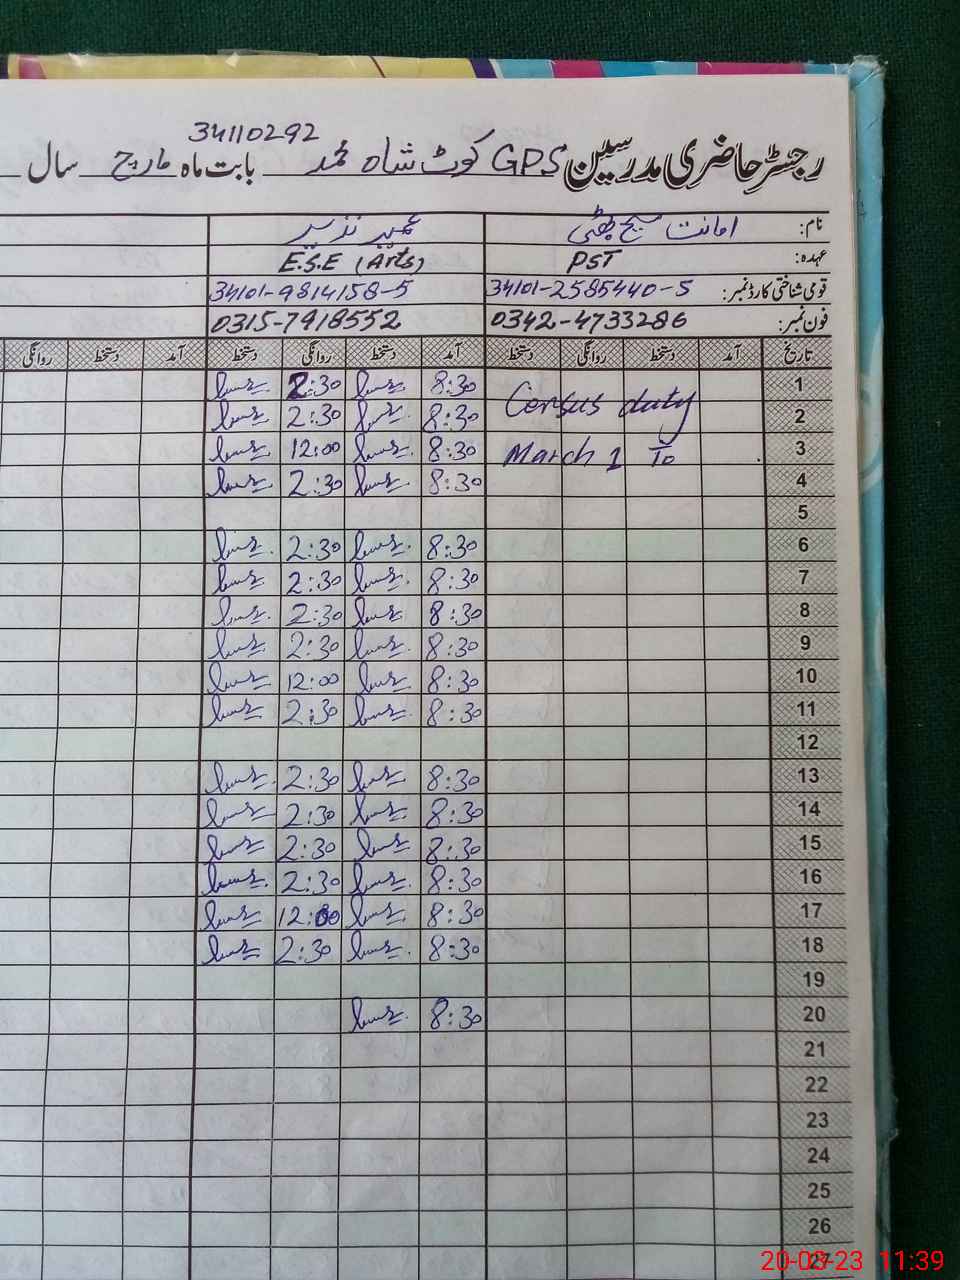 34110292
رجسٹر حاضری مدرسین GPS کوٹ شاہ محمد بابت ماہ مارچ سال
نام: امانت مسیح بھٹی عمیر نذیر
عہدہ: PST E.S.E (Arts)
قومی شناختی کارڈ نمبر: 34101-2585440-5 34101-9814158-5
فون نمبر: 0342-4733286 0315-7918552
تاریخ آمد دستخط روانگی دستخط آمد دستخط روانگی دستخط آمد دستخط روانگی
1 8:30 2:30
Census duty
2 8:30 2:30
3 March 1 To 8:30 12:00
4 8:30 2:30
5
6 8:30 2:30
7 8:30 2:30
8 8:30 2:30
9 8:30 2:30
10 8:30 12:00
11 8:30 2:30
12
13 8:30 2:30
14 8:30 2:30
15 8:30 2:30
16 8:30 2:30
17 8:30 12:00
18 8:30 2:30
19
20 8:30
21
22
23
24
25
26
27
20-03-23 11:39